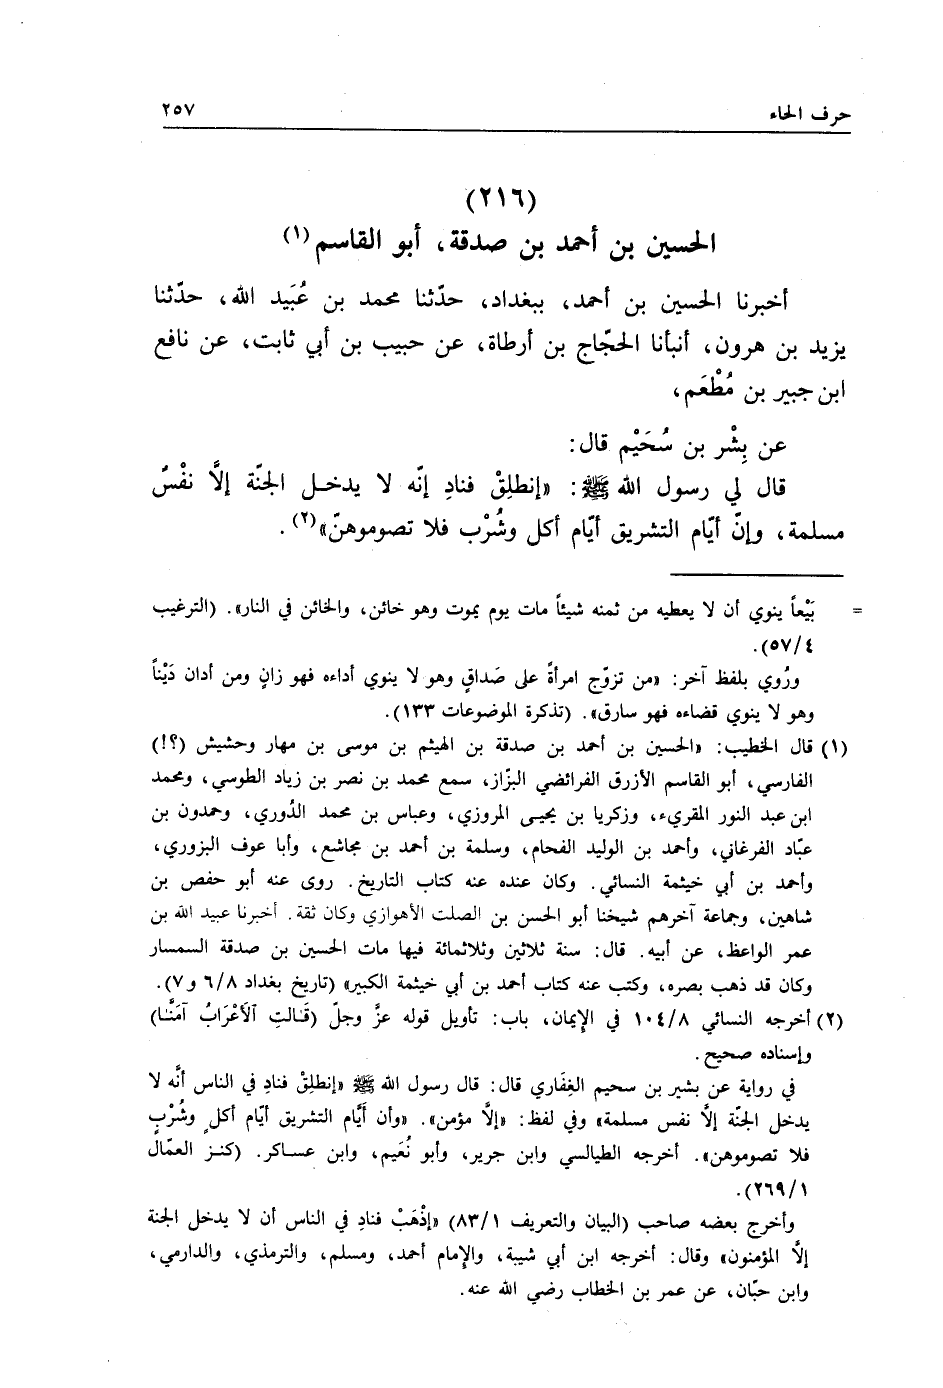 حرف الحاء ٢٥٧
(٢١٦)
الحسين بن أحمد بن صدقة، أبو القاسم(١)
أخبرنا الحسين بن أحمد، ببغداد، حدّثنا محمد بن عُبَيد الله، حدّثنا
يزيد بن هرون، أنبأنا الحجّاج بن أرطاة، عن حبيب بن أبي ثابت، عن نافع
ابن جبير بن مُطْعَم،
عن بِشْر بن سُحَيْم قال:
قال لي رسول الله ﷺ: «إنطلِقْ فنادِ إنّه لا يدخـل الجنّة إلاَّ نفْسٌ
مسلمة، وإنّ أيّام التشريق أيّام أكل وشُرْب فلا تصوموهنّ»(٢).
= بَيْعاً ينوي أن لا يعطيه من ثمنه شيئاً مات يوم يموت وهو خائن، والخائن في النار». (الترغيب
٥٧/٤).
ورُوي بلفظ آخر: «من تزوّج امرأةً على صَداقٍ وهو لا ينوي أداءه فهو زانٍ ومن أدان دَيْناً
وهو لا ينوي قضاءه فهو سارق». (تذكرة الموضوعات ١٣٣).
(١) قال الخطيب: «الحسين بن أحمد بن صدقة بن الهيثم بن موسى بن مهار وحشيش (؟!)
الفارسي، أبو القاسم الأزرق الفرائضي البزّاز، سمع محمد بن نصر بن زياد الطوسي، ومحمد
ابن عبد النور المقريء، وزكريا بن يحيى المروزي، وعباس بن محمد الدُوري، وحمدون بن
عبّاد الفرغاني، وأحمد بن الوليد الفحام، وسلمة بن أحمد بن مجاشع، وأبا عوف البزوري،
وأحمد بن أبي خيثمة النسائي. وكان عنده عنه كتاب التاريخ. روى عنه أبو حفص بن
شاهين، وجماعة آخرهم شيخنا أبو الحسن بن الصلت الأهوازي وكان ثقة. أخبرنا عبيد الله بن
عمر الواعظ، عن أبيه. قال: سنة ثلاثين وثلاثمائة فيها مات الحسين بن صدقة السمسار
وكان قد ذهب بصره، وكتب عنه كتاب أحمد بن أبي خيثمة الكبير» (تاريخ بغداد ٦/٨ و٧).
(٢) أخرجه النسائي ١٠٤/٨ في الإيمان، باب: تأويل قوله عزَّ وجلّ (قَـالتِ ٱلأَعْرَابُ آمَنَّـا)
وإسناده صحيح.
في رواية عن بشير بن سحيم الغِفَاري قال: قال رسول الله ﷺ «إنطلِقْ فنادِ في الناس أنَّه لا
يدخل الجنّة إلاَّ نفس مسلمة» وفي لفظ: «إلاَّ مؤمن». «وأن أيَّام التشريق أيّام أكلٍ وشُرْبٍ
فلا تصوموهن». أخرجه الطيالسي وابن جرير، وأبو نُعَيم، وابن عسـاكر. (كنـز العمّال
٢٦٩/١).
وأخرج بعضه صاحب (البيان والتعريف ٨٣/١) «إذْهَبْ فنادِ في الناس أن لا يدخل الجنة
إلاَّ المؤمنون» وقال: أخرجه ابن أبي شيبة، والإمام أحمد، ومسلم، والترمذي، والدارمي،
وابن حبّان، عن عمر بن الخطاب رضي الله عنه.